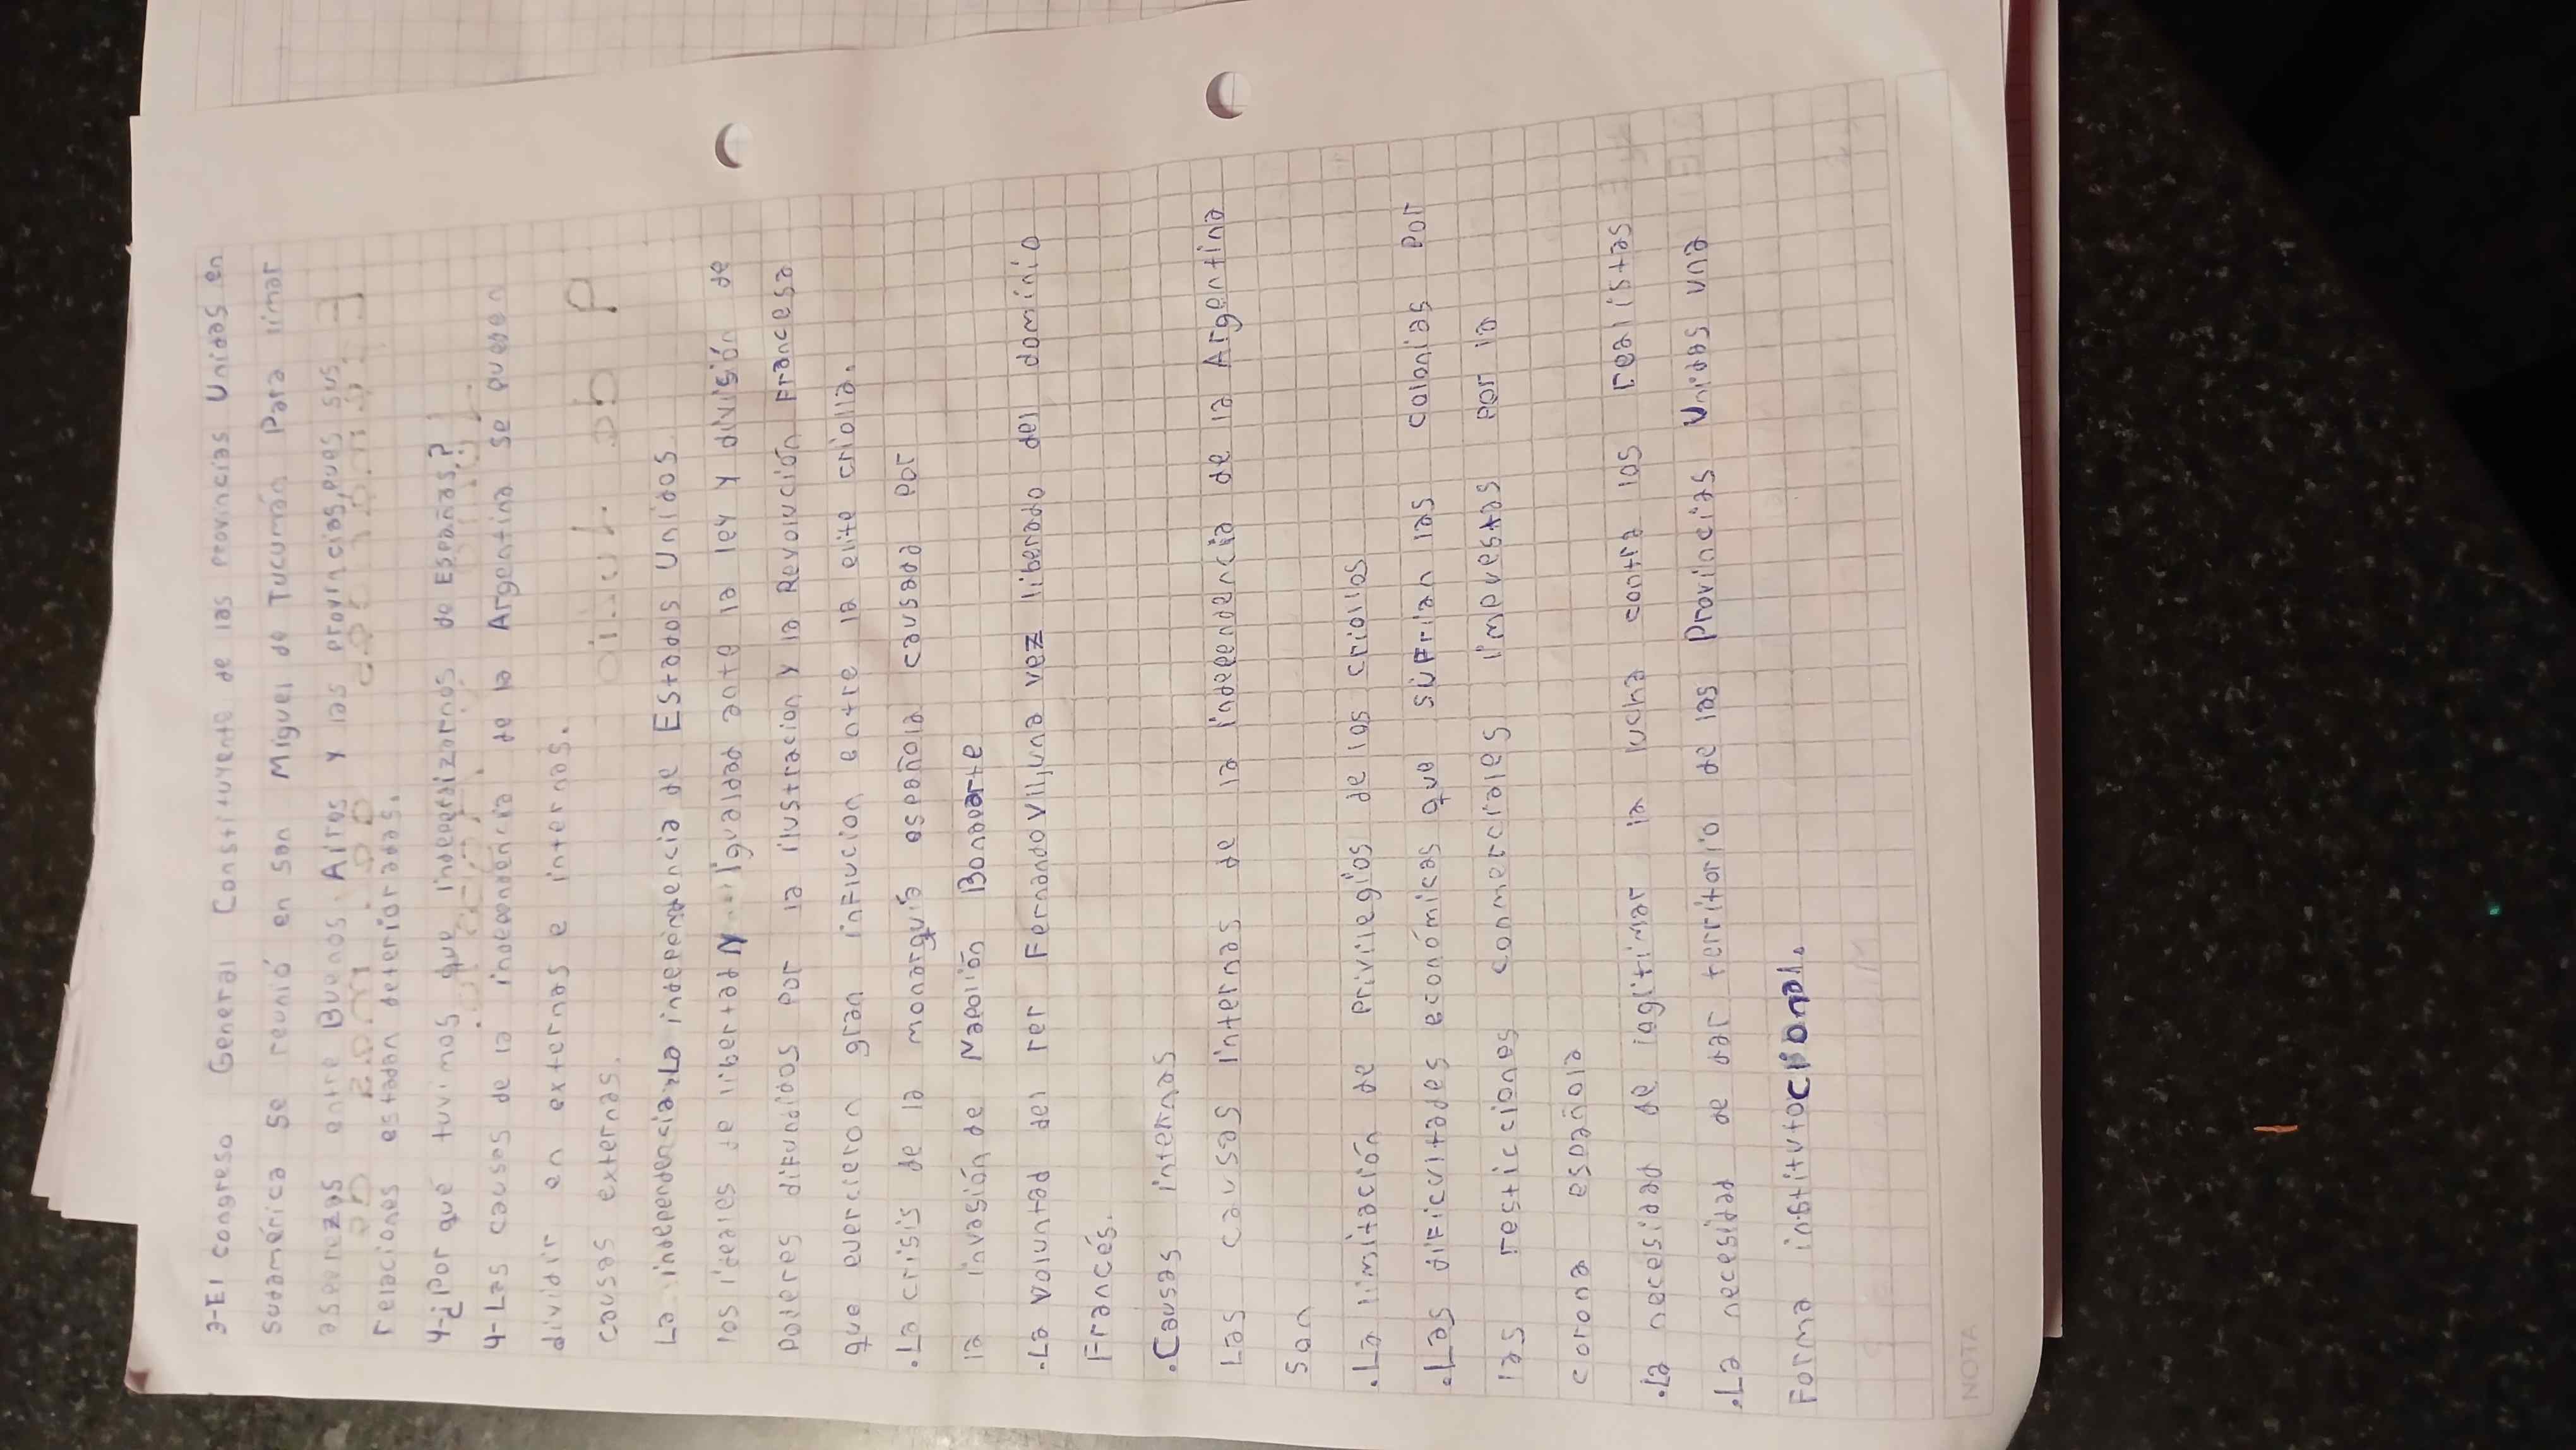 3-El congreso General Constituyente de las provincias Unidas en
sudamérica se reunió en san Miguel de Tucumán Para limar
asperezas entre Buenos Aires y las provincias, pues sus
relaciones estadan deterioradas.
4-¿Por qué tuvimos que indepedizarnos de Españas?
4-Las causas de la independencia de la Argentina se pueden
dividir en externas e internas.
causas externas.
La independencia.La independencia de Estados Unidos
los ideales de libertad y igualdad ante la ley y división de
poderes difundidos por la ilustracion y la Revolución Francesa
que evercieron gran influcion entre la elite criolla.
.La crisis de la monarquía española causada por
la invasión de Napolión Bonaparte
.La voluntad del rer Fernando VII,una vez liberado del dominio
Francés.
.Causas internas
Las causas internas de la independencia de la Argentina
son
.La limitación de privilegios de los criollos
.Las dificultades económicas que sufrian las colonias por
las resticciones conmerciales impuestas por la
corona española
.la necesidad de legitimar la lucha contra los realistas
.La necesidad de dar territorio de las Provincias Unidas una
Forma institutocional.
NOTA